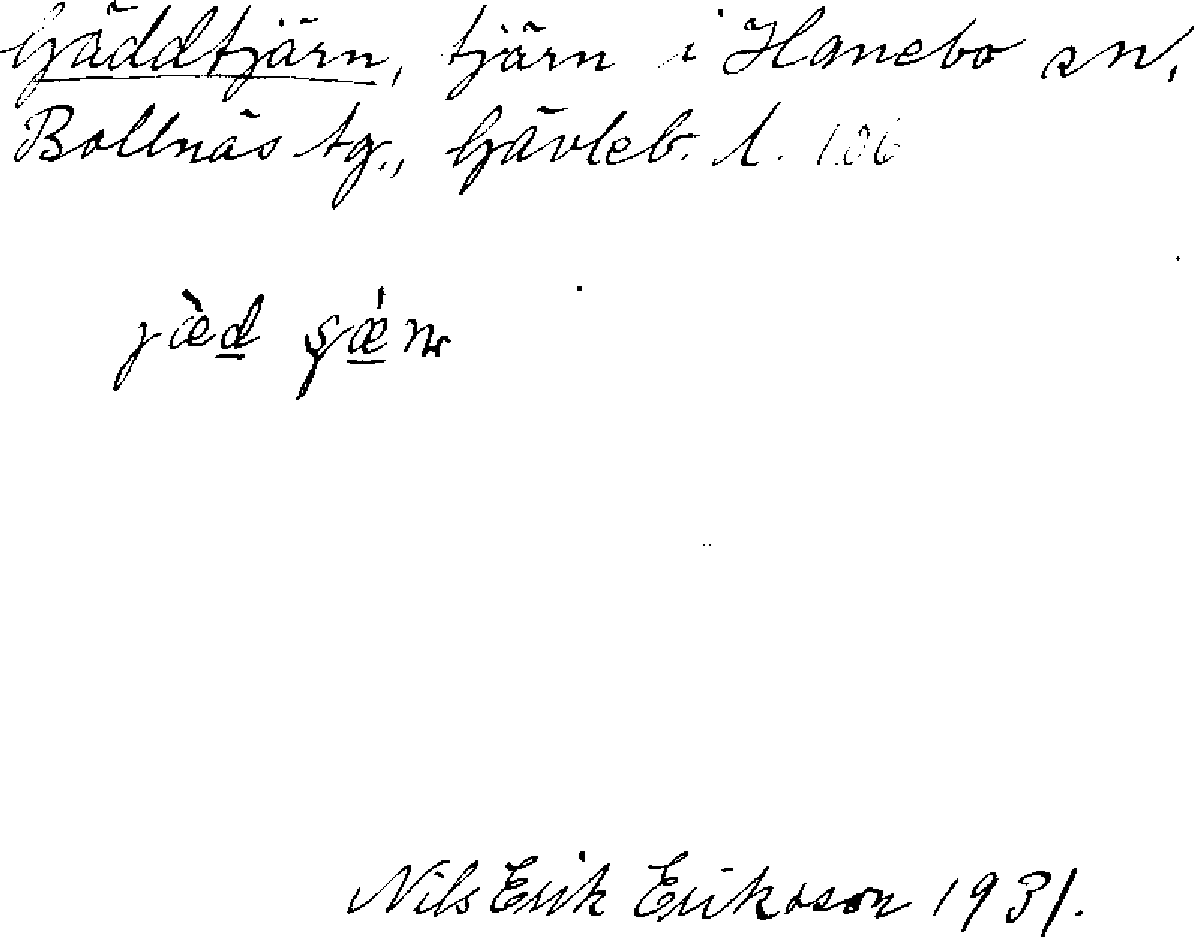 Gäddtjärn, tjärn i Hanebo sn,
Bollnäs tg., Gävleb. l. 106
Nils Erik Erikson 1931.